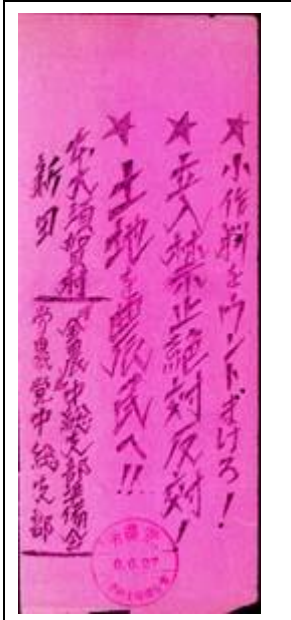 ★小作料をウントまけろ!
★立入禁止絶対反対!
★土地を農民へ!!
本大須賀村
新田
全農中総支部準備会
労農党中総支部
6.6.27